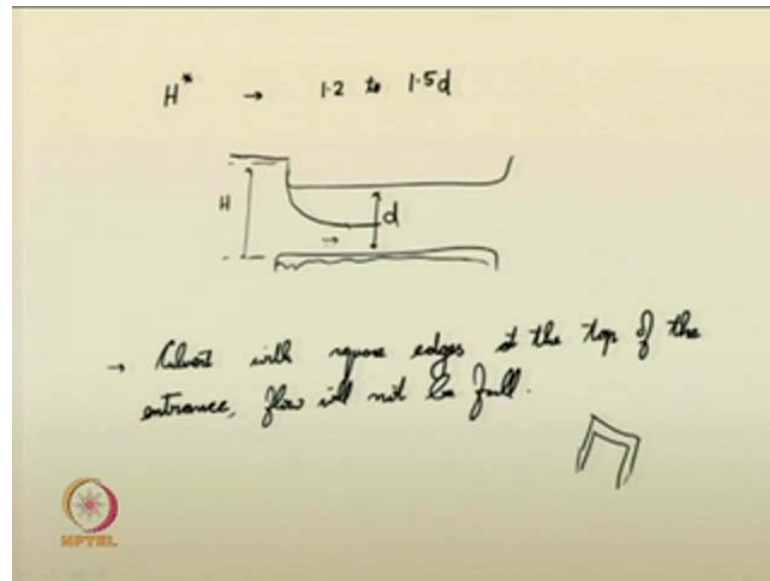 H* → 1.2 to 1.5d
H
d
→ Culvert with square edges at the top of the
entrance, flow will not be full.
NPTEL